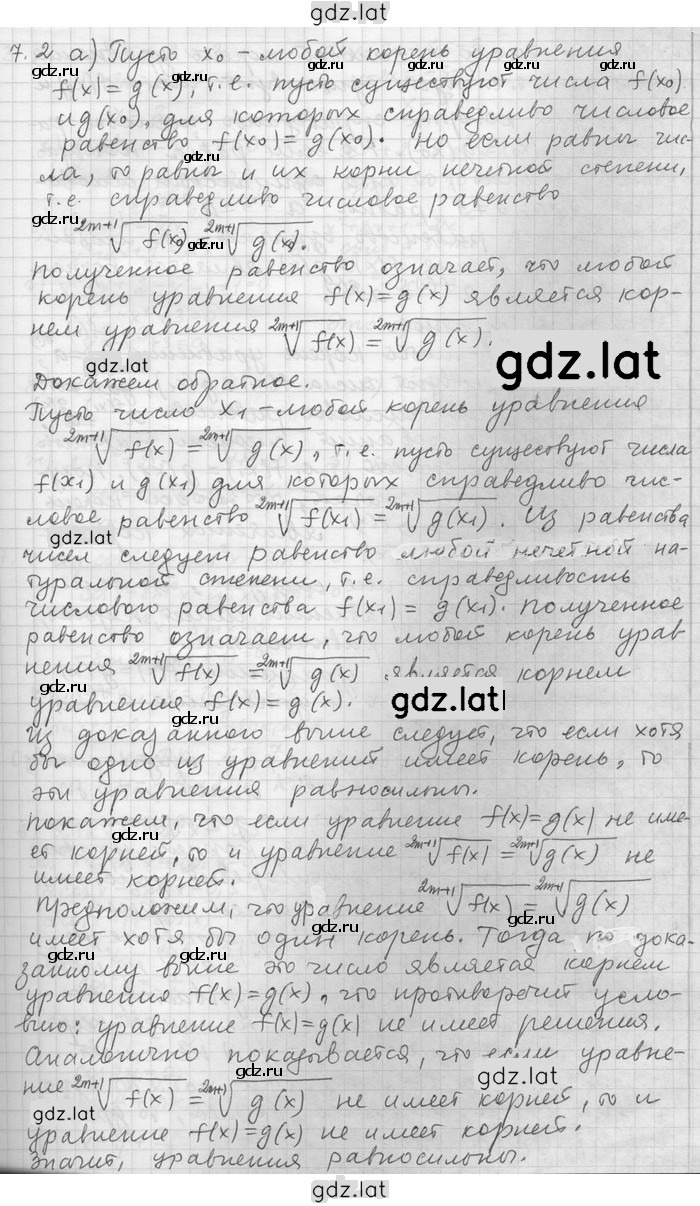 gdz.lat
7.2 а) Пусть x₀ – любой корень уравнения
f(x) = g(x), т.е. пусть существуют числа f(x₀)
и g(x₀), для которых справедливо числовое
равенство f(x₀) = g(x₀). Но если равны чис-
ла, то равны и их корни нечетной степени,
т.е. справедливо числовое равенство
²ᵐ⁺¹√f(x₀) = ²ᵐ⁺¹√g(x₀).
Полученное равенство означает, что любой
корень уравнения f(x) = g(x) является кор-
нем уравнения ²ᵐ⁺¹√f(x) = ²ᵐ⁺¹√g(x).
gdz.lat
Докажем обратное.
Пусть число x₁ – любой корень уравнения
²ᵐ⁺¹√f(x) = ²ᵐ⁺¹√g(x), т.е. пусть существуют числа
f(x₁) и g(x₁) для которых справедливо чис-
ловое равенство ²ᵐ⁺¹√f(x₁) = ²ᵐ⁺¹√g(x₁). Из равенства
чисел следует равенство любой нечетной на-
туральной степени, т.е. справедливость
числового равенства f(x₁) = g(x₁). Полученное
равенство означает, что любой корень урав-
нения ²ᵐ⁺¹√f(x) = ²ᵐ⁺¹√g(x) является корнем
уравнения f(x) = g(x).
gdz.lat
Из доказанного выше следует, что если хотя
бы одно из уравнений имеет корень, то
эти уравнения равносильны.
Покажем, что если уравнение f(x)=g(x) не име-
ет корней, то и уравнение ²ᵐ⁺¹√f(x) = ²ᵐ⁺¹√g(x) не
имеет корней.
Предположим, что уравнение ²ᵐ⁺¹√f(x) = ²ᵐ⁺¹√g(x)
имеет хотя бы один корень. Тогда по дока-
занному выше это число является корнем
уравнения f(x) = g(x), что противоречит усло-
вию: уравнение f(x)=g(x) не имеет решения.
Аналогично показывается, что если уравне-
ние ²ᵐ⁺¹√f(x) = ²ᵐ⁺¹√g(x) не имеет корней, то и
уравнение f(x)=g(x) не имеет корней.
Значит, уравнения равносильны.
gdz.lat